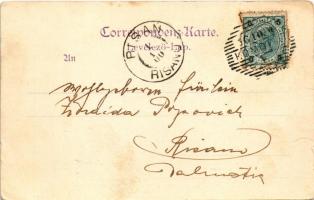 Correspondenz-Karte.
Levelező-Lap.
An
RISAN
RISANO
Wohlgeborn Fräulein
Zoraida Popovich
Risano
Dalmatia